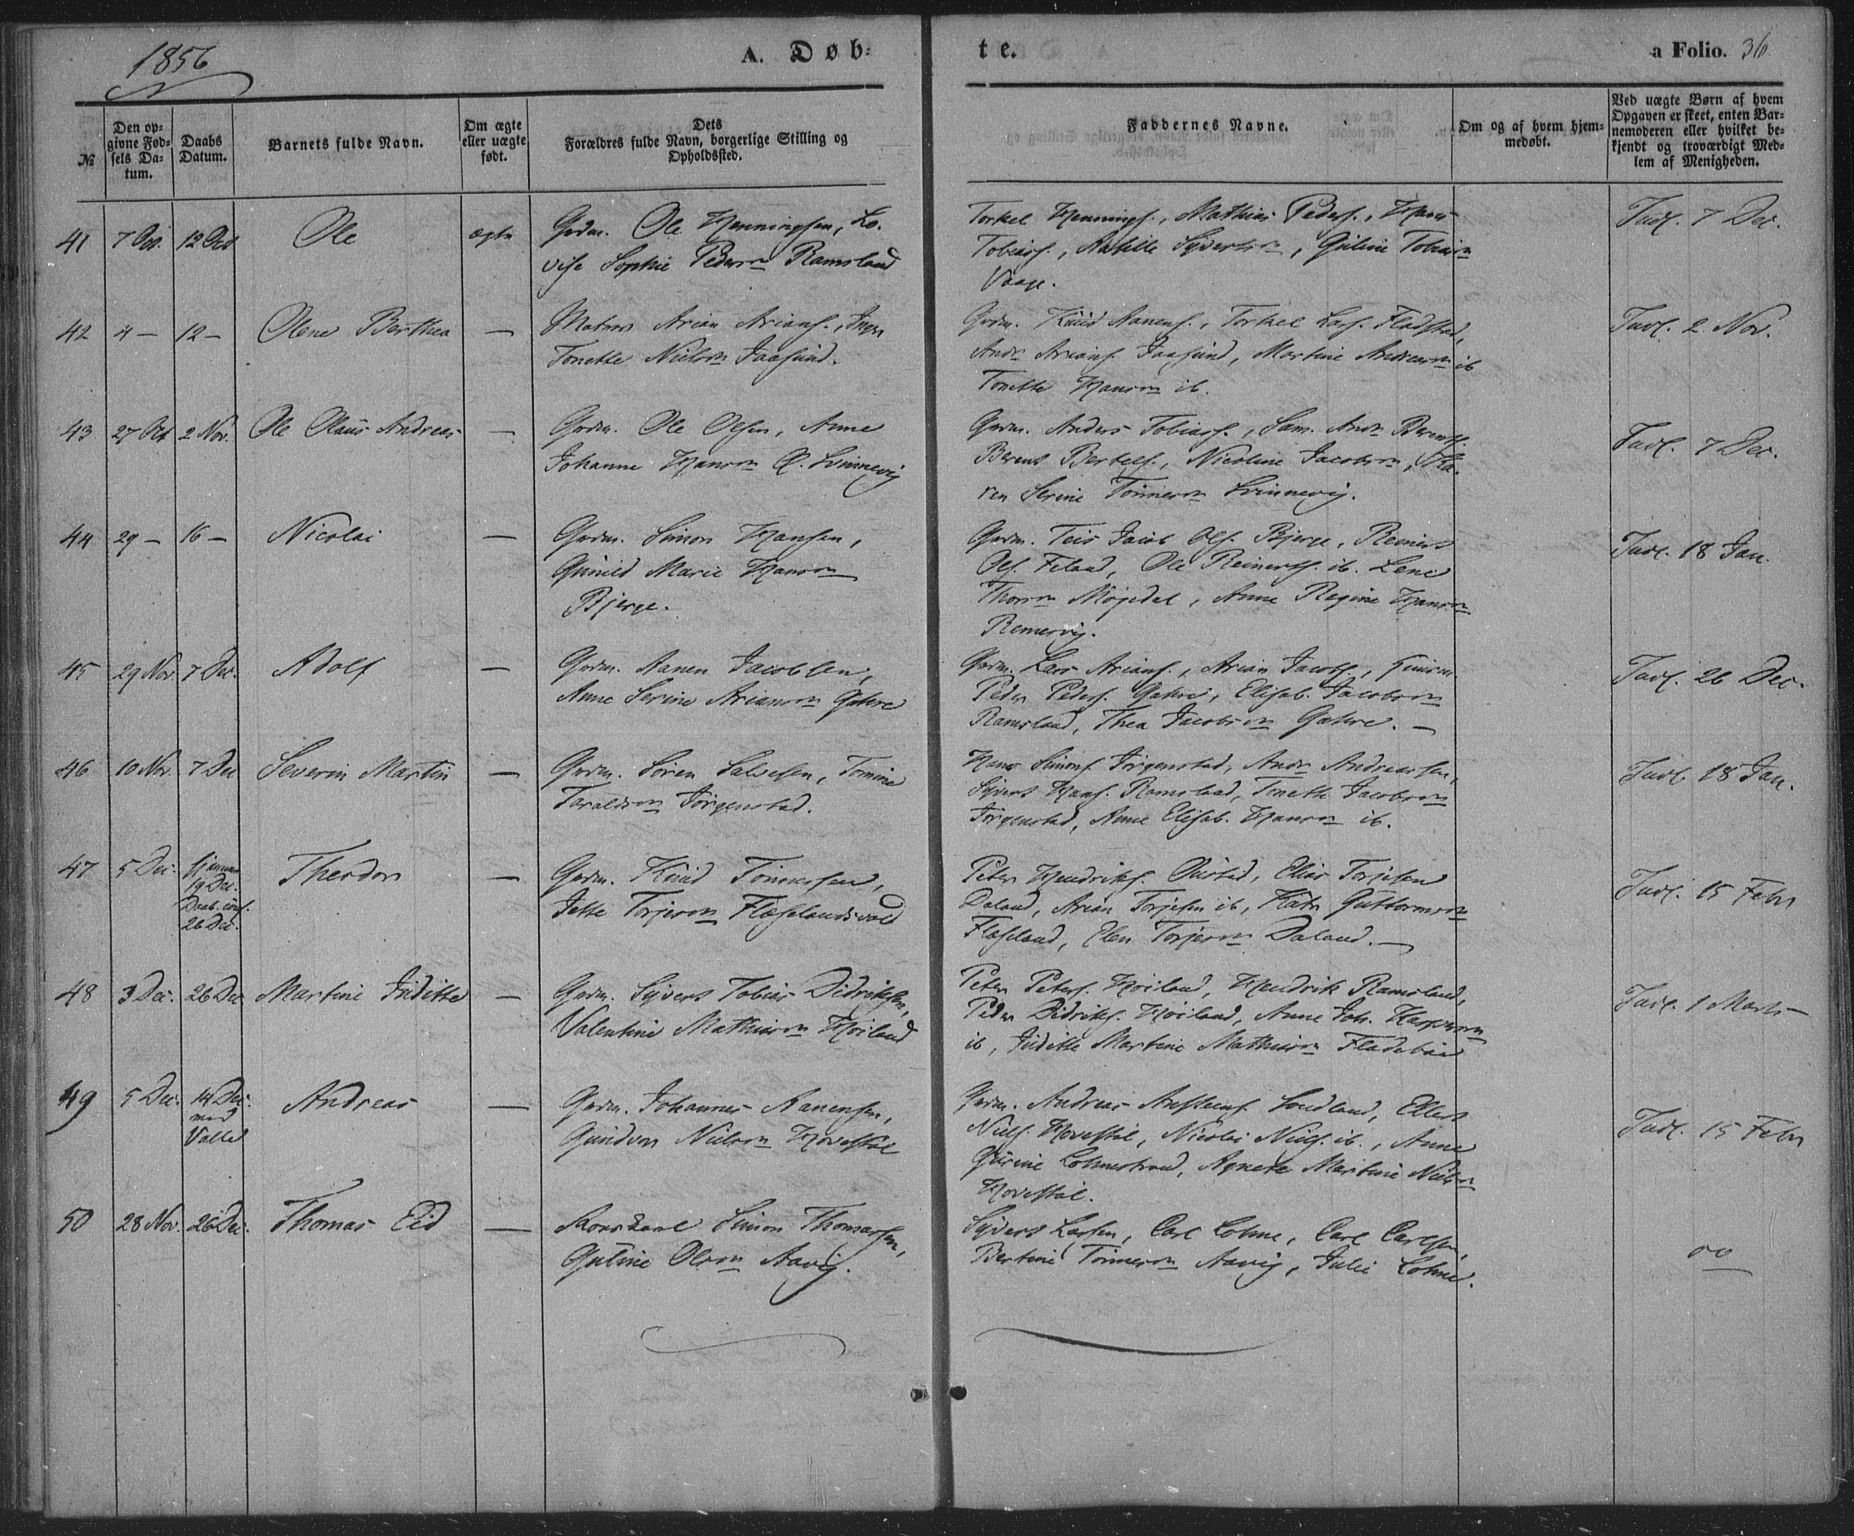 1856
A. Døb-
te.
a Folio. 36
№
Den op-
givne Fød-
sels Da-
tum.
Daabs
Datum.
Barnets fulde Navn.
Om ægte
eller uægte
født.
Dets
Forældres fulde Navn, borgerlige Stilling og
Opholdssted.
Faddernes Navne.
Om og af hvem hjem-
medøbt.
Ved uægte Børn af hvem
Opgaven er skeet, enten Bar-
nemoderen eller hvilket be-
kjendt og troværdigt Med-
lem af Menigheden.
41 7 Oct. 12 Oct Ole ægte
Gdm. Ole Henningsen, Lo-
vise Sophie Pedersn Ramsland
Torkel Hennings., Mathias Peders., Hans
Tobiass., Sydertsn, Guline Tobiasn
Vaage.
Indl. 7 Dec.
42 4 — 12 — Olene Berthea —
Matros Arian Arians., Inger
Tonette Nielsn Jaasund.
Gdm. Knud Aanens., Torkel Lars. Fladstad,
Andr. Arians Jaasund, Martine Andreasn ib
Tonette Hansn ib.
Indl. 2 Nov.
43 27 Oct 2 Nov. Ole Olaus Andreas —
Gdm. Ole Olsen, Anne
Johanne Hansn Ø. Svinnevig
Gdm. Anders Tobiass., Sam. Andr. Berents.
Berent Bertels., Nicoline Jacobsn, Ka-
ren Serine Tønnesn Svinnevig.
Indl. 7 Dec.
44 29 — 16 — Nicolai —
Gdm. Simon Hansen,
Gunild Marie Hansn
Bjerge.
Gdm. Teis Jacob Ols. Bjerge, Reinert
Ols. Feland, Ole Reinerts. ib. Lene
Thorsn Møjedal, Anne Regine Hansn
Remervig.
Indl. 18 Jan.
45 29 Nov 7 Dec. Adolf —
Gdm. Aanen Jacobsen,
Anne Serine Ariansn Gahre
Gdm. Lars Arians., Arian Jacobs.,
Peder Peders. Gahre, Elisab. Jacobsn
Ramsland, Thea Jacobsn Gahre. —
Indl. 26 Dec.
46 10 Nov. 7 Dec Severin Martin —
Gdm. Søren Salvesen, Tomine
Taraldsn Jørgenstad.
Hans Simons Jørgenstad, Andr. Andreassen,
Syvert Hans. Ramsland, Tonette Jacobsn
Jørgenstad, Anne Elisab. Hansn ib.
Indl. 18 Jan.
47 5 Dec. Hjemme
19 Dec.
Daab. conf.
26 Dec. Theodor —
Gdm. Knud Tønnessen,
Jette Torjesn Fleselandsvold
Peter Hendriks. Østed, Elias Torjesen
Daland, Arian Torjesen ib, Kate Guttormsn
Fleseland, Elen Torjesn Daland. —
Indl. 15 Febr
48 3 Dec. 26 Dec Martine Juditte —
Gdm. Syvert Tobias Didriksen,
Valentine Mathiasn Høiland
Peter Peters. Høiland, Hendrik Ramsland,
Peder Didriks. Høiland, Anne Joh. Kaspersn
ib, Juditte Martine Mathiasn Fladebøe
Indl. 1 Marts —
49 5 Dec. 14 Dec.
ved
Valle Andreas —
Gdm. Johannes Aanensen,
Gundvor Nielsn Hovestøl
Gdm. Andreas Anstens Søndland, Ellert
Niels Hovestøl, Nicolai Niels. ib., Anne
Gurine Lohnestrand, Agnete Martine Nielsn
Hovestøl.
Indl. 15 Febr
50 28 Nov. 26 Dec. Thomas Eid —
Simon Thomassen,
Guline Olsn Aavig.
Syvert Larsen, Carl Lohne, Carl Carlsen,
Bertine Tønnesn Aavig, Julie Lohne.